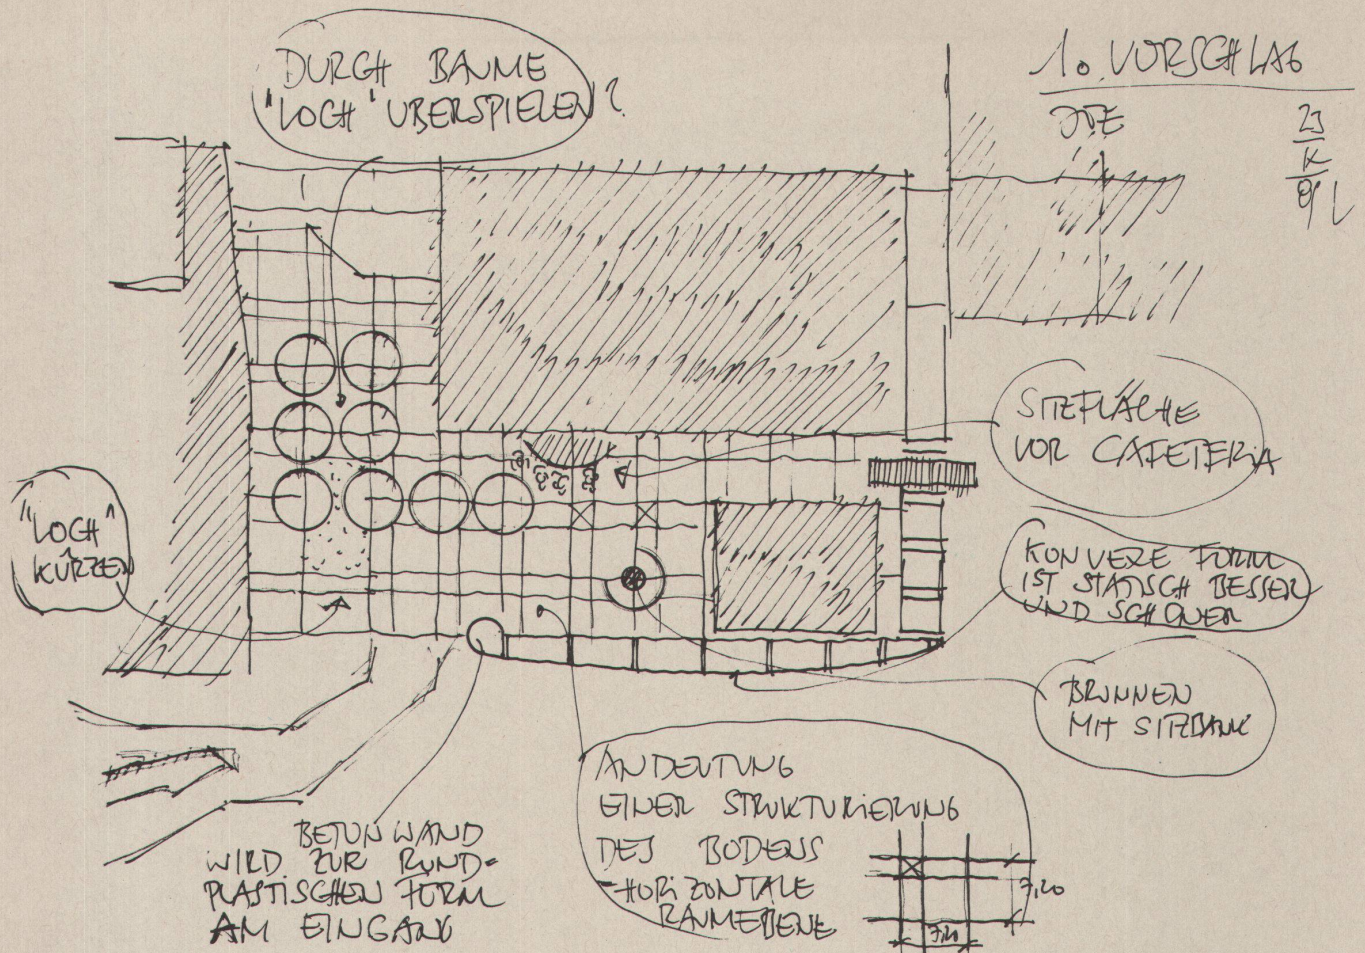 DURCH BÄUME
"LOCH" ÜBERSPIELEN?
1. VORSCHLAG
"LOCH"
KÜRZEN
SITZFLÄCHE
VOR CAFETERIA
KONVEXE FORM
IST STATISCH BESSER
UND SCHÖNER
BRUNNEN
MIT SITZBANK
ANDEUTUNG
EINER STRUKTURIERUNG
DES BODENS
-HORIZONTALE
RAUMEBENE
7,20
7,20
BETONWAND
WIRD ZUR RUND-
PLASTISCHEN FORM
AM EINGANG